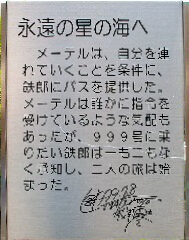 永遠の星の海へ
メーテルは、自分を連
れていくことを条件に、
鉄郎にパスを提供した。
メーテルは誰かに指令を
受けているような気配も
あったが、999号に乗
りたい鉄郎は一も二もな
く承知し、二人の旅は始
まった。